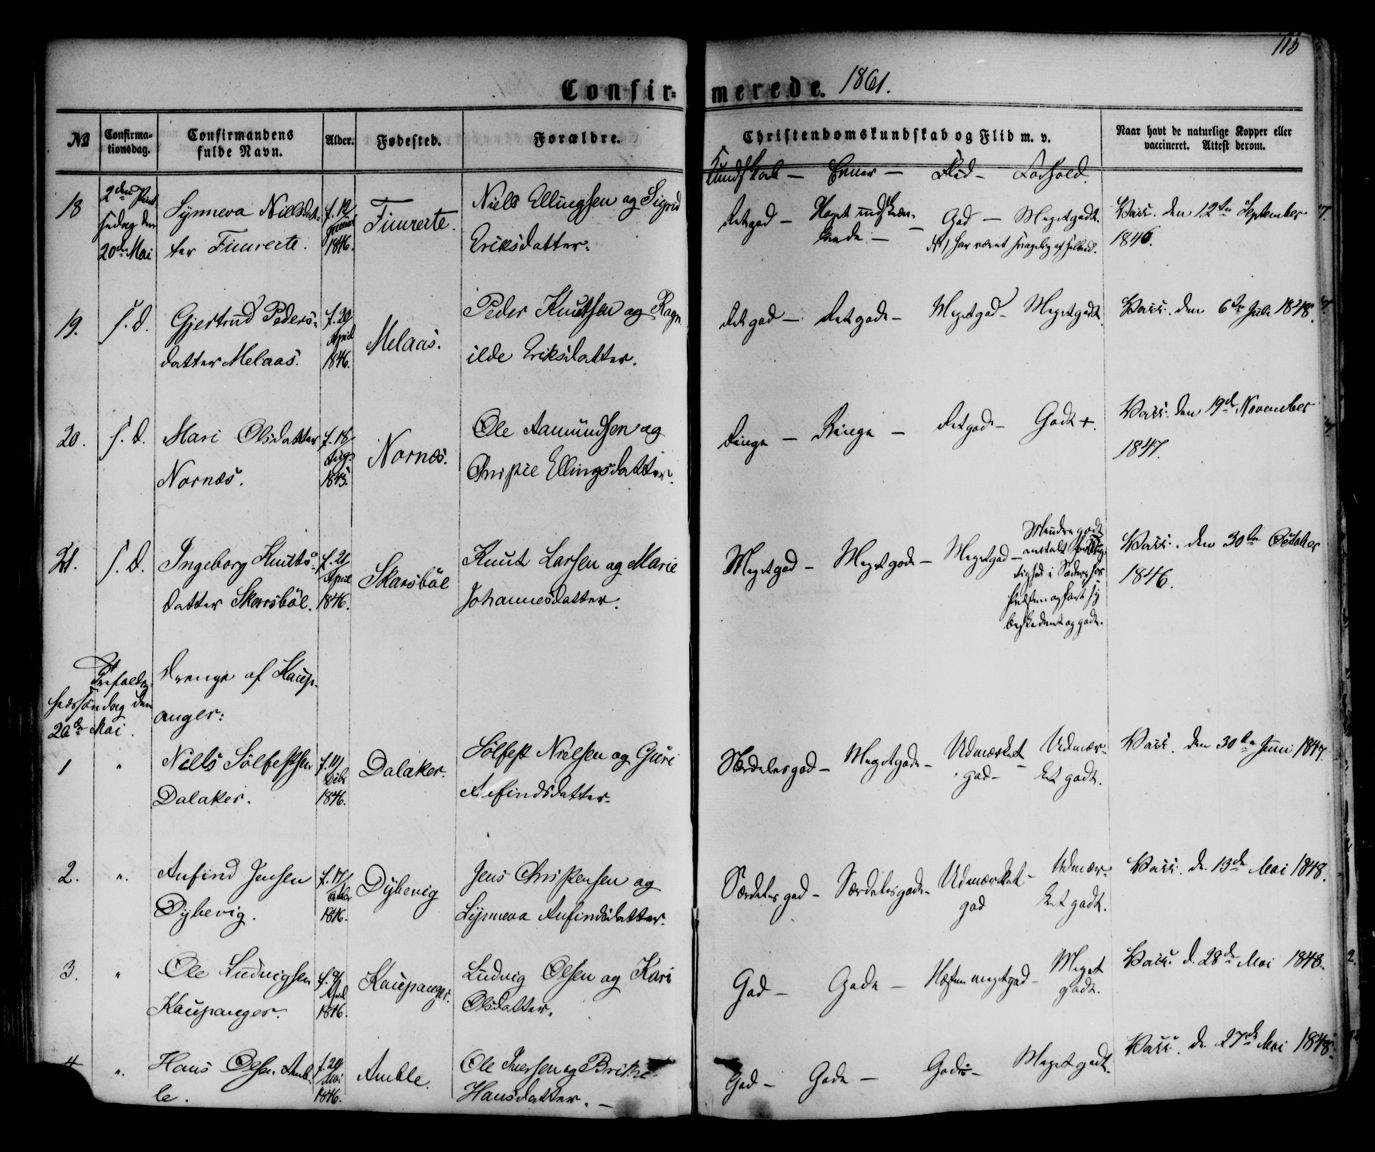 113
Confirmerede. 1861.
No Confirmationsdag. Confirmandens fulde Navn. Alder. Fødested. Forældre. Christendomskundskab og Flid m. v. Naar havt de naturlige Kopper eller vaccineret. Attest derom.
Kundskab — Evner — Flid — Forhold.
18 2den
20de Mai
Synneva Nielsdat-
ter Fimreite.
1846.
Fimreite.
Niels Ellingsen og Sigrid
Eriksdatter.
Retgod — Meget
God — Megetgodt
Vacc. den 12te September
1846.
19. s. D. Gjertrud Peders-
datter Melaas.
f. 20
April
1846.
Melaas.
Peder Knutsen og Ragn
ilde Eriksdatter.
Retgod — Retgode — Megetgod — Megetgodt.
Vacc. den 6te Juli 1848.
20. s. D. Mari Olsdatter
Nornæs.
f. 18
Aug.
1845.
Nornæs.
Ole Aamundsen og
Ellingsdatter.
Ringe — Ringe — Retgod — Godt +.
Vacc. den 19de November
1847.
21. s. D. Ingeborg Knuts-
datter Skarsbøl.
f. 21
April
1846.
Skarsbøl
Knut Larsen og Marie
Johannesdatter.
Megetgod — Megetgode — Megetgod —
Mindre godt
beskedent og godt.
Vacc. den 30te October
1846.
Trefoldig-
hedssøndag den
26de Mai.
Drenge af Kaup-
anger:
1 " Niels Sølfestsen
Dalaker.
1846.
Dalaker.
Sølfest Nielsen og Guri
Anfindsdatter.
Særdelesgod — Megetgode — Udmærket
god —
Udmær-
ket godt.
Vacc. den 30te Juni 1847.
2. " Anfind Jensen
Dybevig.
f. 17
1846.
Dybevig
Jens Christensen og
Synneva Anfindsdatter.
Særdeles god — Særdelesgode — Udmærket
god
Udmær-
ket godt.
Vacc. d. 13de Mai 1848.
3. " Ole Ludvigsen
Kaupanger.
April
1846.
Kaupanger.
Ludvig Olsen og Kari
Olsdatter.
God — Gode — Næsten megetgod —
Meget
godt.
Vacc. d. 28de Mai 1848.
4. " Hans Olsen Amb-
le.
f. 24
1846.
Amble.
Ole Iversen og
Hansdatter.
God — Gode — God — Megetgodt.
Vacc. d. 27de Mai 1848.